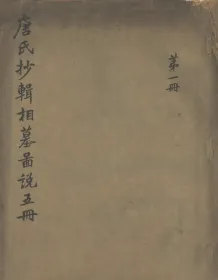 唐氏抄輯相墓啚説五冊
第一冊